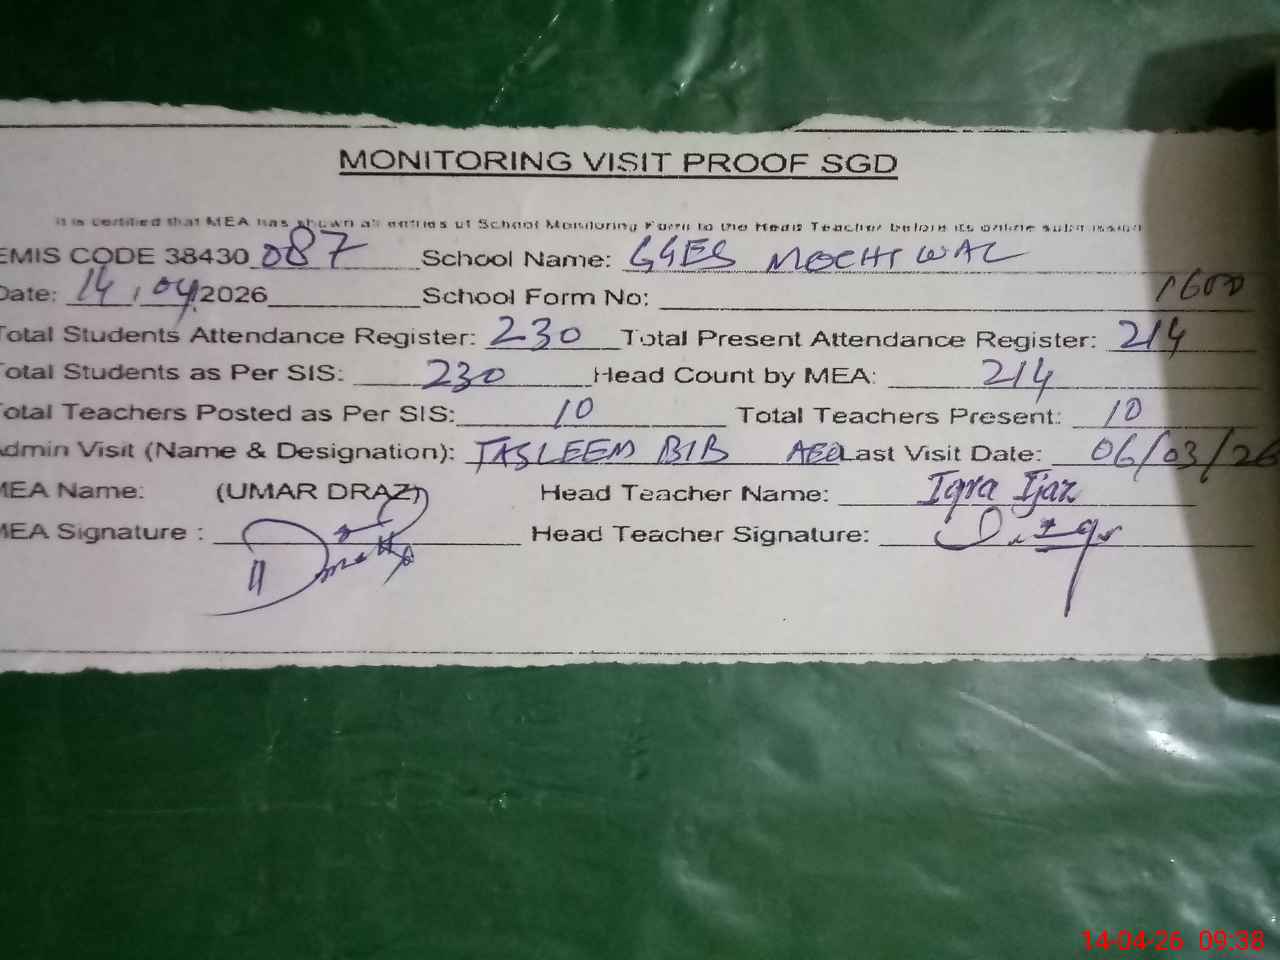 MONITORING VISIT PROOF SGD
It is certified that MEA has shown all entries of School Monitoring Form to the Head Teacher before its online submission
EMIS CODE 38430 087 School Name: GGES MOCHIWAL
Date: 14/04/2026 School Form No: 1600
Total Students Attendance Register: 230 Total Present Attendance Register: 214
Total Students as Per SIS: 230 Head Count by MEA: 214
Total Teachers Posted as Per SIS: 10 Total Teachers Present: 10
Admin Visit (Name & Designation): TASLEEM BIB AEO Last Visit Date: 06/03/26
MEA Name: (UMAR DRAZ) Head Teacher Name: Iqra Ijaz
MEA Signature : Head Teacher Signature:
14-04-26 09:38